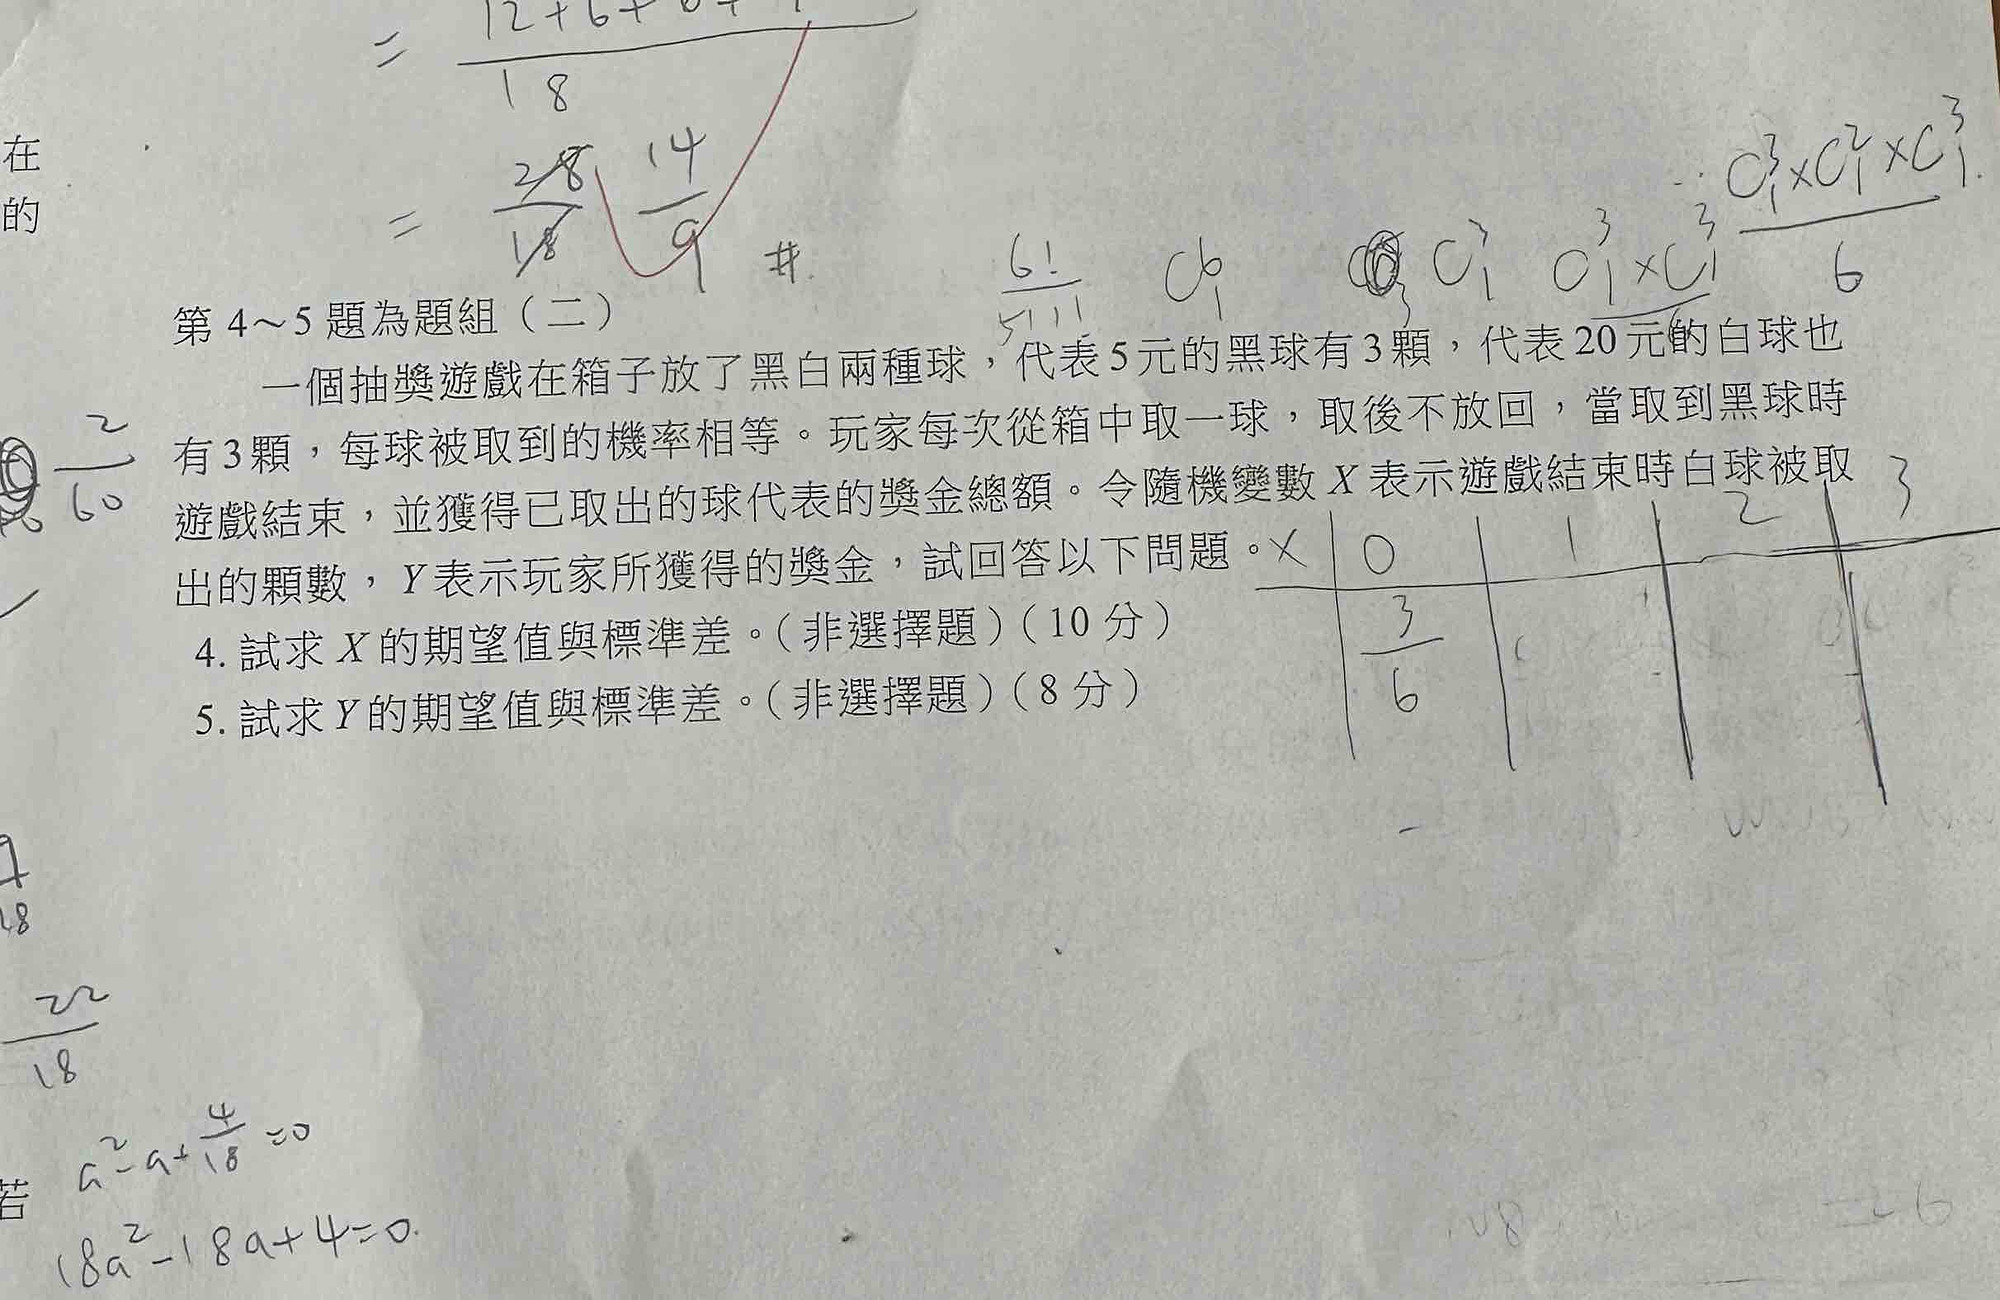 12+6+6+
=
18
28 14
= 18 9 #.
在
的
C³₁×C²₁×C³₁
6
6! C⁶₁ C³₁ C³₁×C³₁
5!1!
第 4～5 題為題組（二）
一個抽獎遊戲在箱子放了黑白兩種球，代表 5 元的黑球有 3 顆，代表 20 元的白球也
有 3 顆，每球被取到的機率相等。玩家每次從箱中取一球，取後不放回，當取到黑球時
遊戲結束，並獲得已取出的球代表的獎金總額。令隨機變數 X 表示遊戲結束時白球被取
出的顆數，Y 表示玩家所獲得的獎金，試回答以下問題。
4. 試求 X 的期望值與標準差。（非選擇題）（10 分）
5. 試求 Y 的期望值與標準差。（非選擇題）（8 分）
X 0 1 2 3
3
6
2
60
18
22
18
a²-a+4/18=0
若
18a²-18a+4=0.